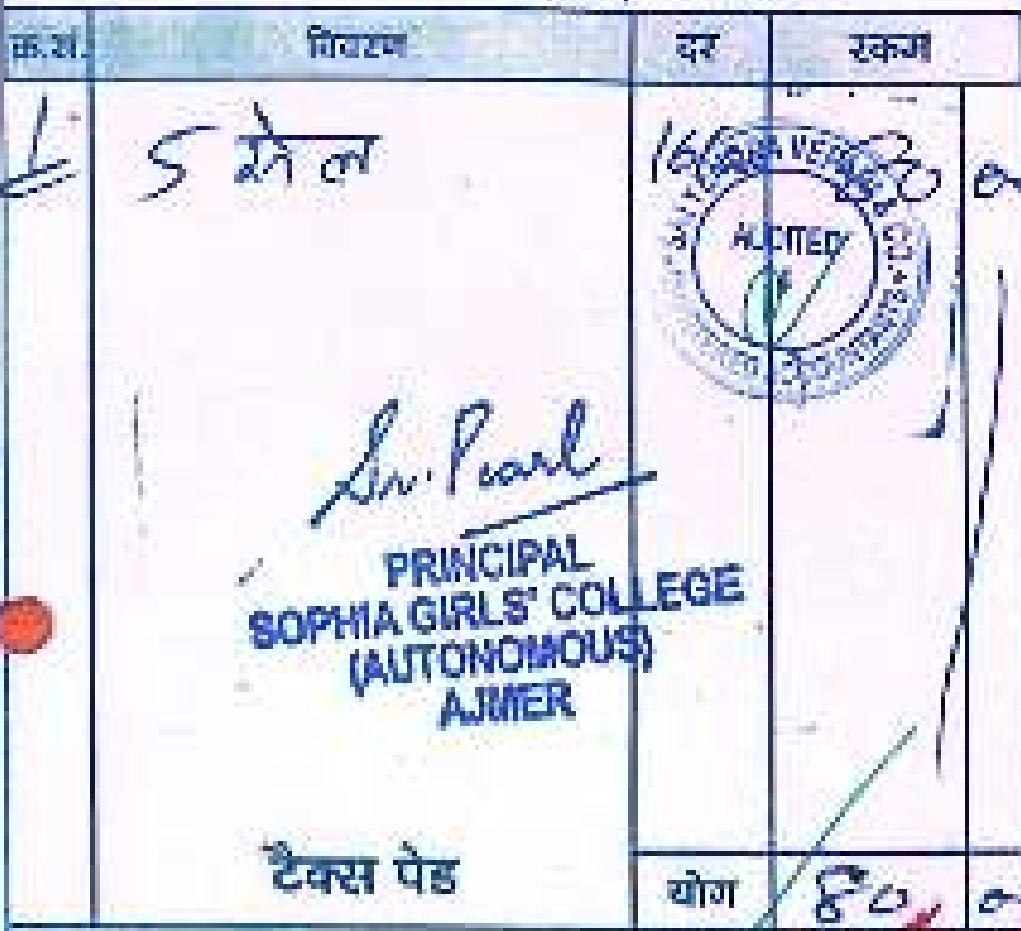 क्र.सं. विवरण दर रकम
1 5 सेल
AUDITED
Sr. Pearl
PRINCIPAL
SOPHIA GIRLS' COLLEGE
(AUTONOMOUS)
AJMER
टैक्स पेड योग 80